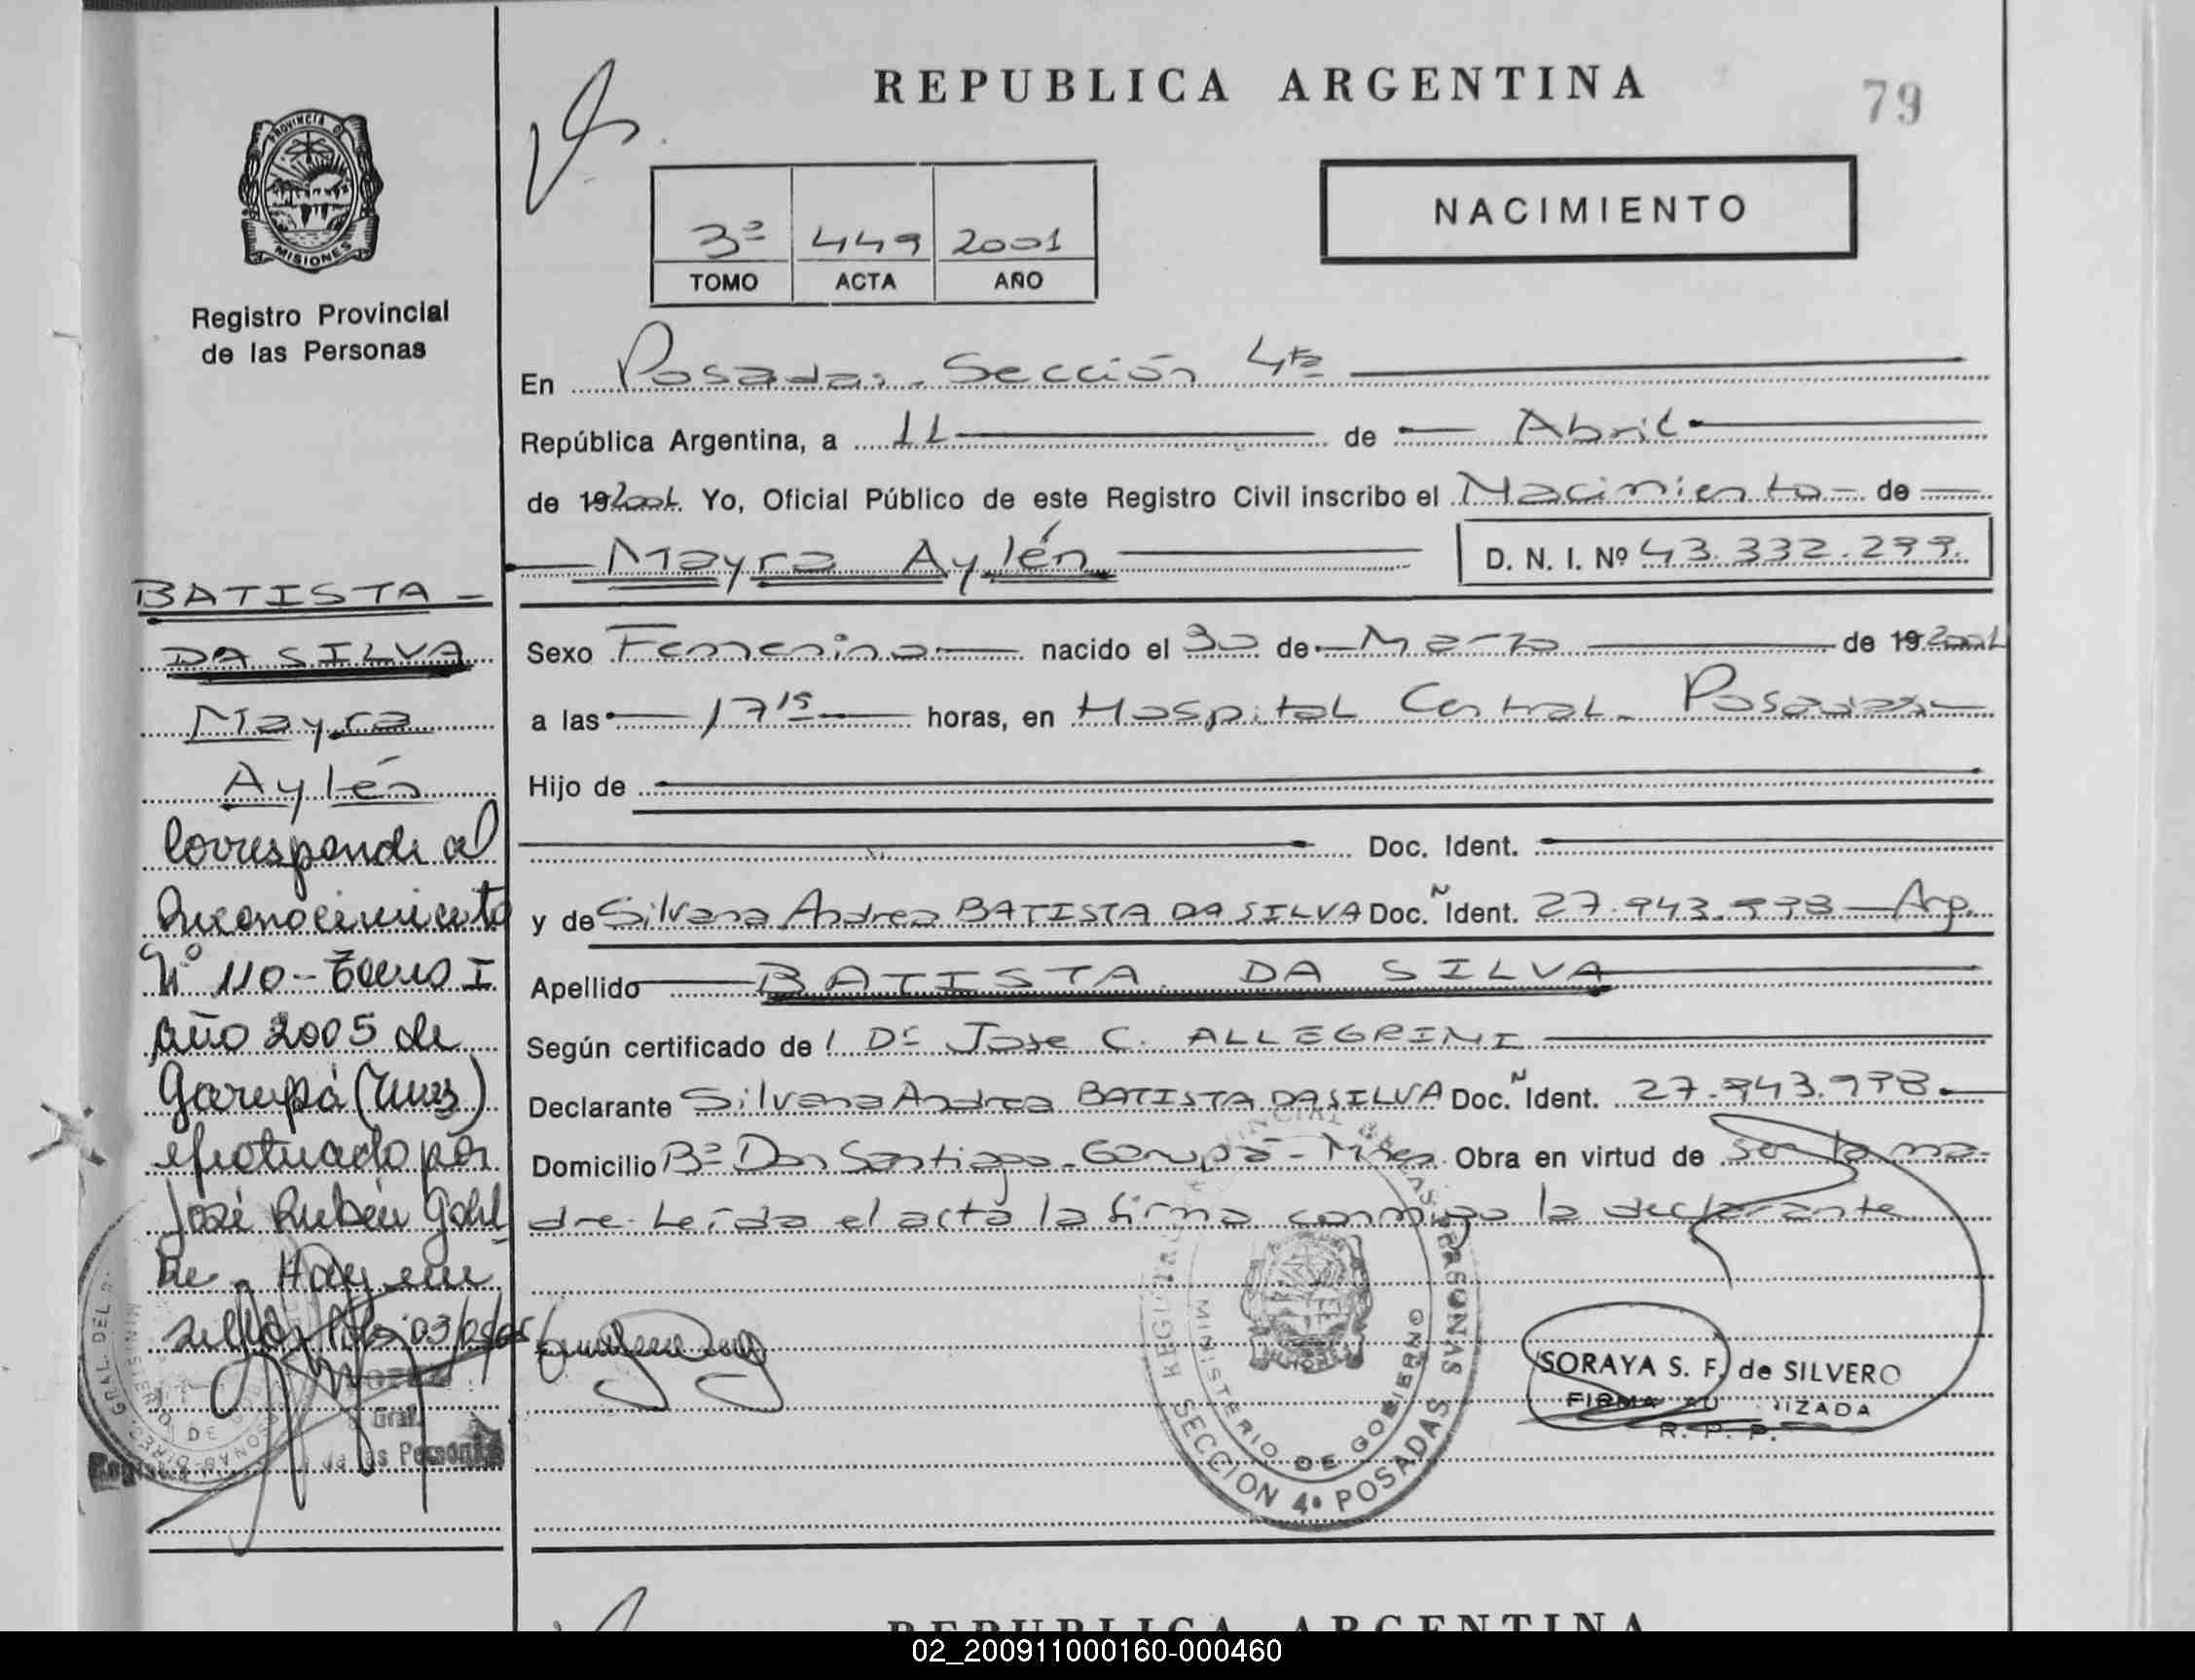 REPUBLICA ARGENTINA
79
PROVINCIA DE
MISIONES
Registro Provincial
de las Personas
NACIMIENTO
3º 449 2001
TOMO ACTA AÑO
En Posadas. Sección 4ta
República Argentina, a 11 de Abril
de 19 2001. Yo, Oficial Público de este Registro Civil inscribo el Nacimiento de
Mayra Aylén D. N. I. Nº 43.332.299.
Sexo Femenino nacido el 30 de Marzo de 19 2001
a las 17 15 horas, en Hospital Central. Posadas
Hijo de
Doc. Ident.
y de Silvana Andrea BATISTA DA SILVA Doc. Ident. 27.943.998 Arg.
Apellido BATISTA DA SILVA
Según certificado de l Dr Jose C. ALLEGRINI
Declarante Silvana Andrea BATISTA DA SILVA Doc. Ident. 27.943.998.
Domicilio Bº Don Santiago - Garupá - Mnes. Obra en virtud de ser la ma-
dre. Leída el acta la firma conmigo la declarante
BATISTA -
DA SILVA
Mayra
Aylén
Corresponde al
Reconocimiento
Nº 110 - Tomo I
año 2005 de
Garupá (Mnes)
efectuado por
José Rubén
Hay un
sello. 03/
Gral.
de las Personas
MINISTERIO DE GOBIERNO
SECCION 4ª POSADAS
SORAYA S. F. de SILVERO
FIRMA AUTORIZADA
R. P. P.
REPUBLICA ARGENTINA
02_200911000160-000460